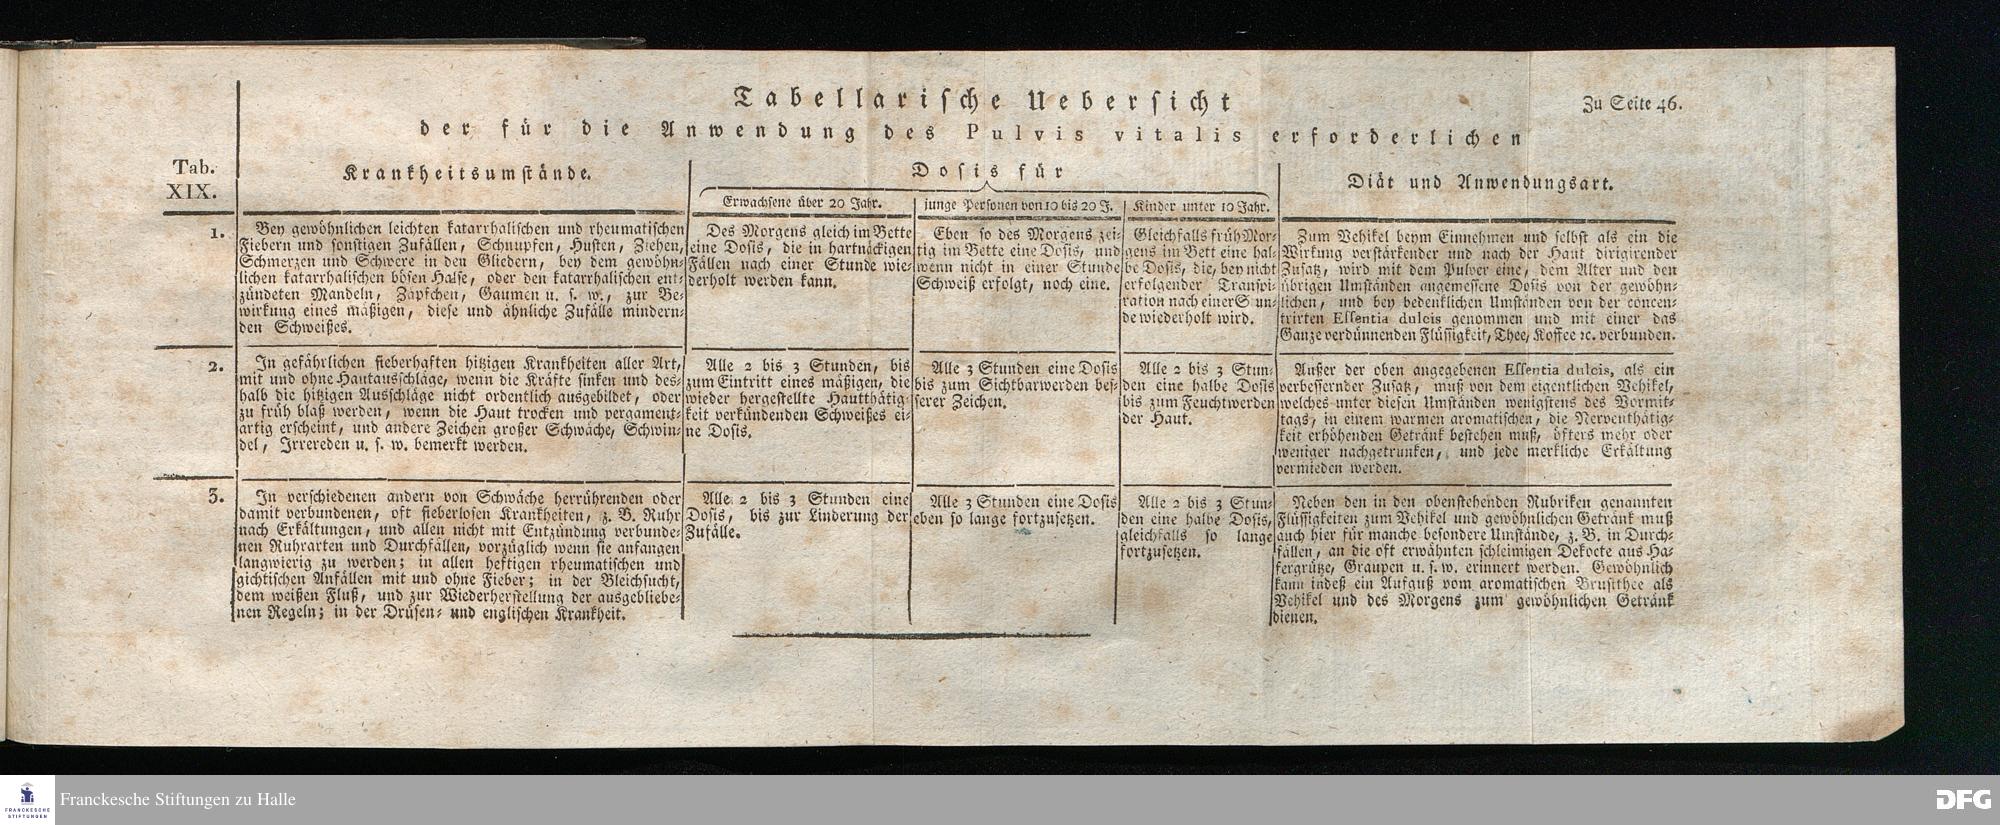 Tabellarische Uebersicht
Zu Seite 46.
der für die Anwendung des Pulvis vitalis erforderlichen
Tab.
XIX.
Krankheitsumstände.
Dosis für
Diät und Anwendungsart.
Erwachsene über 20 Jahr.
junge Personen von 10 bis 20 J.
Kinder unter 10 Jahr.
1.
Bey gewöhnlichen leichten katarrhalischen und rheumatischen
Fiebern und sonstigen Zufällen, Schnupfen, Husten, Ziehen,
Schmerzen und Schwere in den Gliedern, bey dem gewöhn-
lichen katarrhalischen bösen Halse, oder den katarrhalischen ent-
zündeten Mandeln, Zäpfchen, Gaumen u. s. w., zur Be-
wirkung eines mäßigen, diese und ähnliche Zufälle mindern-
den Schweißes.
Des Morgens gleich im Bette
eine Dosis, die in hartnäckigen
Fällen nach einer Stunde wie-
derholt werden kann.
Eben so des Morgens zei-
tig im Bette eine Dosis, und
wenn nicht in einer Stunde
Schweiß erfolgt, noch eine.
Gleichfalls früh Mor-
gens im Bett eine hal-
be Dosis, die, bey nicht
erfolgender Transpi-
ration nach einer Stun-
de wiederholt wird.
Zum Vehikel beym Einnehmen und selbst als ein die
Wirkung verstärkender und nach der Haut dirigirender
Zusatz, wird mit dem Pulver eine, dem Alter und den
übrigen Umständen angemessene Dosis von der gewöhn-
lichen, und bey bedenklichen Umständen von der concen-
trirten Essentia dulcis genommen und mit einer das
Ganze verdünnenden Flüssigkeit, Thee, Koffee ꝛc. verbunden.
2.
In gefährlichen fieberhaften hitzigen Krankheiten aller Art,
mit und ohne Hautausschläge, wenn die Kräfte sinken und des-
halb die hitzigen Ausschläge nicht ordentlich ausgebildet, oder
zu früh blaß werden, wenn die Haut trocken und pergament-
artig erscheint, und andere Zeichen großer Schwäche, Schwin-
del, Irrereden u. s. w. bemerkt werden.
Alle 2 bis 3 Stunden, bis
zum Eintritt eines mäßigen, die
wieder hergestellte Hautthätig-
keit verkündenden Schweißes ei-
ne Dosis.
Alle 3 Stunden eine Dosis
bis zum Sichtbarwerden bes-
serer Zeichen.
Alle 2 bis 3 Stun-
den eine halbe Dosis
bis zum Feuchtwerden
der Haut.
Außer der oben angegebenen Essentia dulcis, als ein
verbessernder Zusatz, muß von dem eigentlichen Vehikel,
welches unter diesen Umständen wenigstens des Vormit-
tags, in einem warmen aromatischen, die Nerventhätig-
keit erhöhenden Getränk bestehen muß, öfters mehr oder
weniger nachgetrunken, und jede merkliche Erkältung
vermieden werden.
3.
In verschiedenen andern von Schwäche herrührenden oder
damit verbundenen, oft fieberlosen Krankheiten, z. B. Ruhr
nach Erkältungen, und allen nicht mit Entzündung verbunde-
nen Ruhrarten und Durchfällen, vorzüglich wenn sie anfangen
langwierig zu werden; in allen heftigen rheumatischen und
gichtischen Anfällen mit und ohne Fieber; in der Bleichsucht,
dem weißen Fluß, und zur Wiederherstellung der ausgebliebe-
nen Regeln; in der Drüsen- und englischen Krankheit.
Alle 2 bis 3 Stunden eine
Dosis, bis zur Linderung der
Zufälle.
Alle 3 Stunden eine Dosis
eben so lange fortzusetzen.
Alle 2 bis 3 Stun-
den eine halbe Dosis,
gleichfalls so lange
fortzusetzen.
Neben den in den obenstehenden Rubriken genannten
Flüssigkeiten zum Vehikel und gewöhnlichen Getränk muß
auch hier für manche besondere Umstände, z. B. in Durch-
fällen, an die oft erwähnten schleimigen Dekocte aus Ha-
fergrütze, Graupen u. s. w. erinnert werden. Gewöhnlich
kann indeß ein Aufguß vom aromatischen Brustthee als
Vehikel und des Morgens zum gewöhnlichen Getränk
dienen.
FRANCKESCHE
STIFTUNGEN
Franckesche Stiftungen zu Halle
DFG